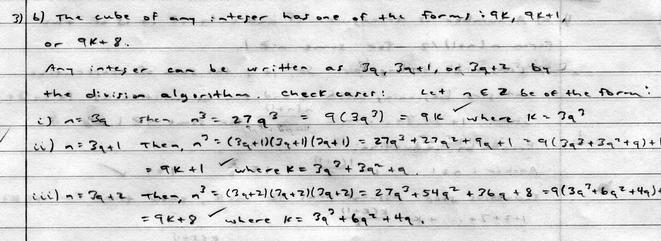 3) b) The cube of any integer has one of the forms: 9k, 9k+1,
or 9k+8.
Any integer can be written as 3q, 3q+1, or 3q+2 by
the division algorithm. Check cases: Let n ∈ Z be of the form:
i) n=3q Then n³ = 27q³ = 9(3q³) = 9k ✓ where k = 3q³
ii) n=3q+1 Then, n³ = (3q+1)(3q+1)(3q+1) = 27q³+27q²+9q+1 = 9(3q³+3q²+q)+1
= 9k+1 ✓ where k = 3q³+3q²+q.
iii) n=3q+2 Then, n³ = (3q+2)(3q+2)(3q+2) = 27q³+54q²+36q+8 = 9(3q³+6q²+4q)+
= 9k+8 ✓ where k = 3q³+6q²+4q.